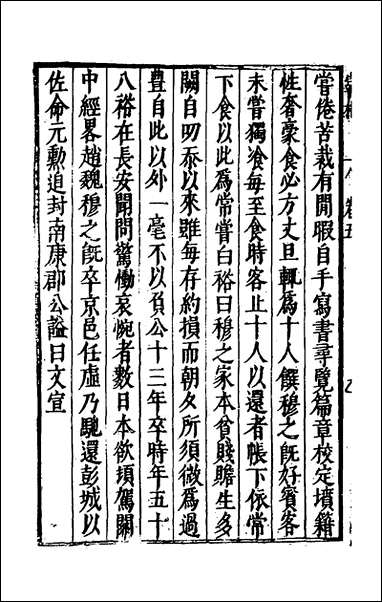 嘗倦苦裁有閒暇自手寫書尋覽篇章校定墳籍
性奢豪食必方丈旦輒爲十人饌穆之旣好賓客
未嘗獨飡每至食時客止十人以還者帳下依常
下食以此爲常嘗白裕曰穆之家本貧賤贍生多
闕自叨忝以來雖每存約損而朝夕所須微爲過
豊自此以外一毫不以負公十三年卒時年五十
八裕在長安聞問驚慟哀惋者數日本欲頓駕關
中經畧趙魏穆之旣卒京邑任虛乃馳還彭城以
佐命元勳追封南康郡公謚曰文宣